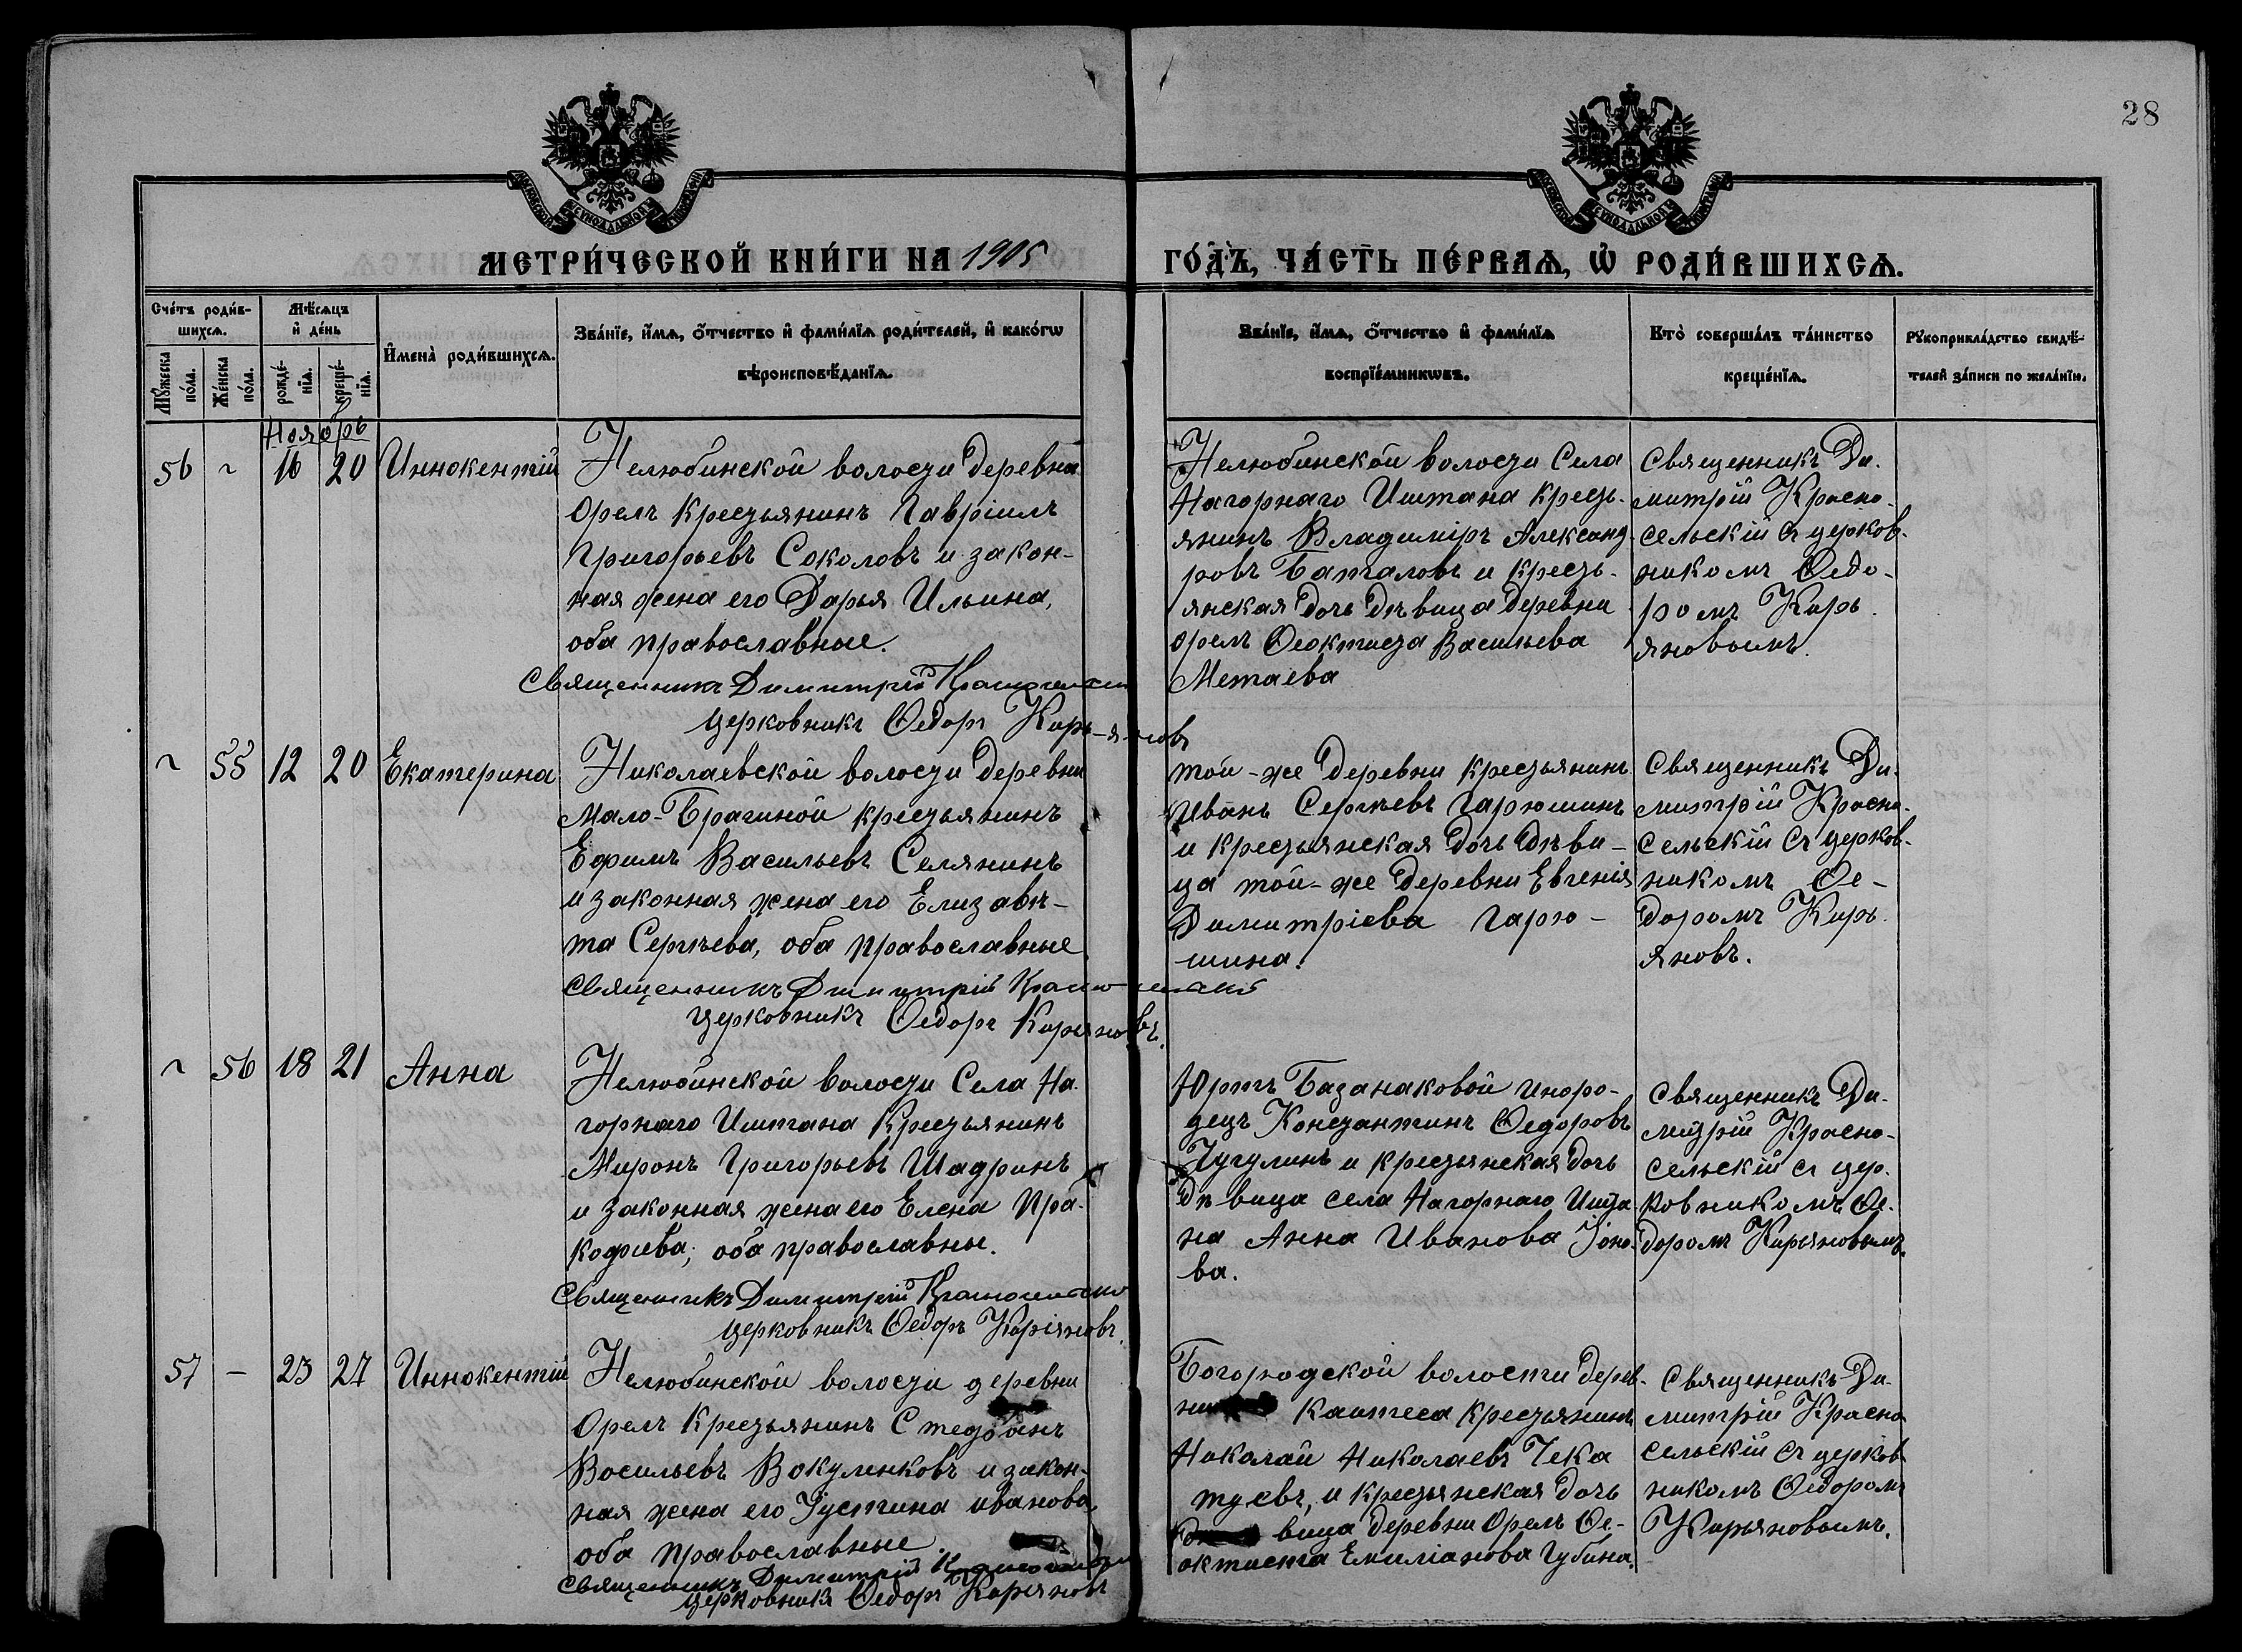 28
МЕТРИ́ЧЕСКОЙ КНИ́ГИ НА 1905
ГО́ДЪ, ЧА́СТЬ ПЕ́РВАѦ, Ѡ РОДИ́ВШИХСѦ.
Сче́тъ роди́в-
шихсѧ.
Мꙋ́жеска
по́ла.
Же́нска
по́ла.
Мѣ́сѧцъ
и҆ де́нь
рожде́-
нїѧ.
креще́-
нїѧ.
И҆мена̀ роди́вшихсѧ.
Зва́нїе, и҆́мѧ, ѻ҆́тчество и҆ фами́лїѧ роди́телей, и҆ како́гѡ
вѣроисповѣ́данїѧ.
Зва́нїе, и҆́мѧ, ѻ҆́тчество и҆ фами́лїѧ
воспрїе́мникѡвъ.
Кто̀ соверша́лъ та́инство
креще́нїѧ.
Рꙋкоприкла́дство свидѣ́-
телей за́писи по жела́нїю.
Ноябрь
56 ~ 16 20 Иннокентій
Нелюбинской волости деревни
Орелъ крестьянинъ Гавріилъ
Григорьевъ Соколовъ и закон-
ная жена его Дарья Ильина,
оба православные.
Священникъ Димитрій Красносельскій
Церковникъ Ѳедоръ Кирь-яновъ
Нелюбинской волости Села
Нагорнаго Иштана кресть-
янинъ Владиміръ Александ-
ровъ Баталовъ и кресть-
янская дочь дѣвица деревни
Орелъ Ѳеоктиста Васильева
Метаева
Священникъ Ди-
митрій Красно-
сельскій съ церков-
никомъ Ѳедо-
ромъ Кирь-
яновымъ.
~ 55 12 20 Екатерина
Николаевской волости деревни
Мало-Брагиной крестьянинъ
Ефимъ Васильевъ Селянинъ
и законная жена его Елизаве-
та Сергѣева, оба православные
Священникъ Димитрій Красносельскій
Церковникъ Ѳедоръ Кирьяновъ.
той-же деревни крестьянинъ
Иванъ Сергѣевъ Гарюшинъ
и крестьянская дочь дѣви-
ца той-же деревни Евгенія
Димитріева Гарю-
шина.
Священникъ Ди-
митрій Красно-
сельскій съ церков-
никомъ Ѳе-
доромъ Кирь-
яновъ.
~ 56 18 21 Анна
Нелюбинской волости Села На-
горнаго Иштана Крестьянинъ
Миронъ Григорьевъ Шадринъ
и законная жена его Елена Про-
кофиева, оба православны.
Священникъ Димитрій Красносельскій
Церковникъ Ѳедоръ Киріяновъ.
Юртъ Базанаковой иноро-
децъ Константинъ Ѳедоровъ
Чугулинъ и крестьянская дочь
дѣвица села Нагорнаго Ишта-
на Анна Иванова Іоно-
ва.
Священникъ Ди-
митрій Красно-
сельскій съ цер-
ковникомъ Ѳе-
доромъ Кирьяновымъ.
57 - 23 27 Иннокентій
Нелюбинской волости деревни
Орелъ Крестьянинъ Стефанъ
Васильевъ Вакуленковъ и закон-
ная жена его Іустина Иванова
оба православные.
Священникъ Димитрій Красносельскій
Церковникъ Ѳедоръ Кирьяновъ
Богородской волости дерев-
ни Каштеса крестьянинъ
Николай Николаевъ Чека
туевъ, и крестьянская дочь
вица деревни Орелъ Ѳе-
октиста Емиліанова Губина.
Священникъ Ди-
митрій Красно
сельскій съ церков-
никомъ Ѳедоромъ
Кирьяновымъ.